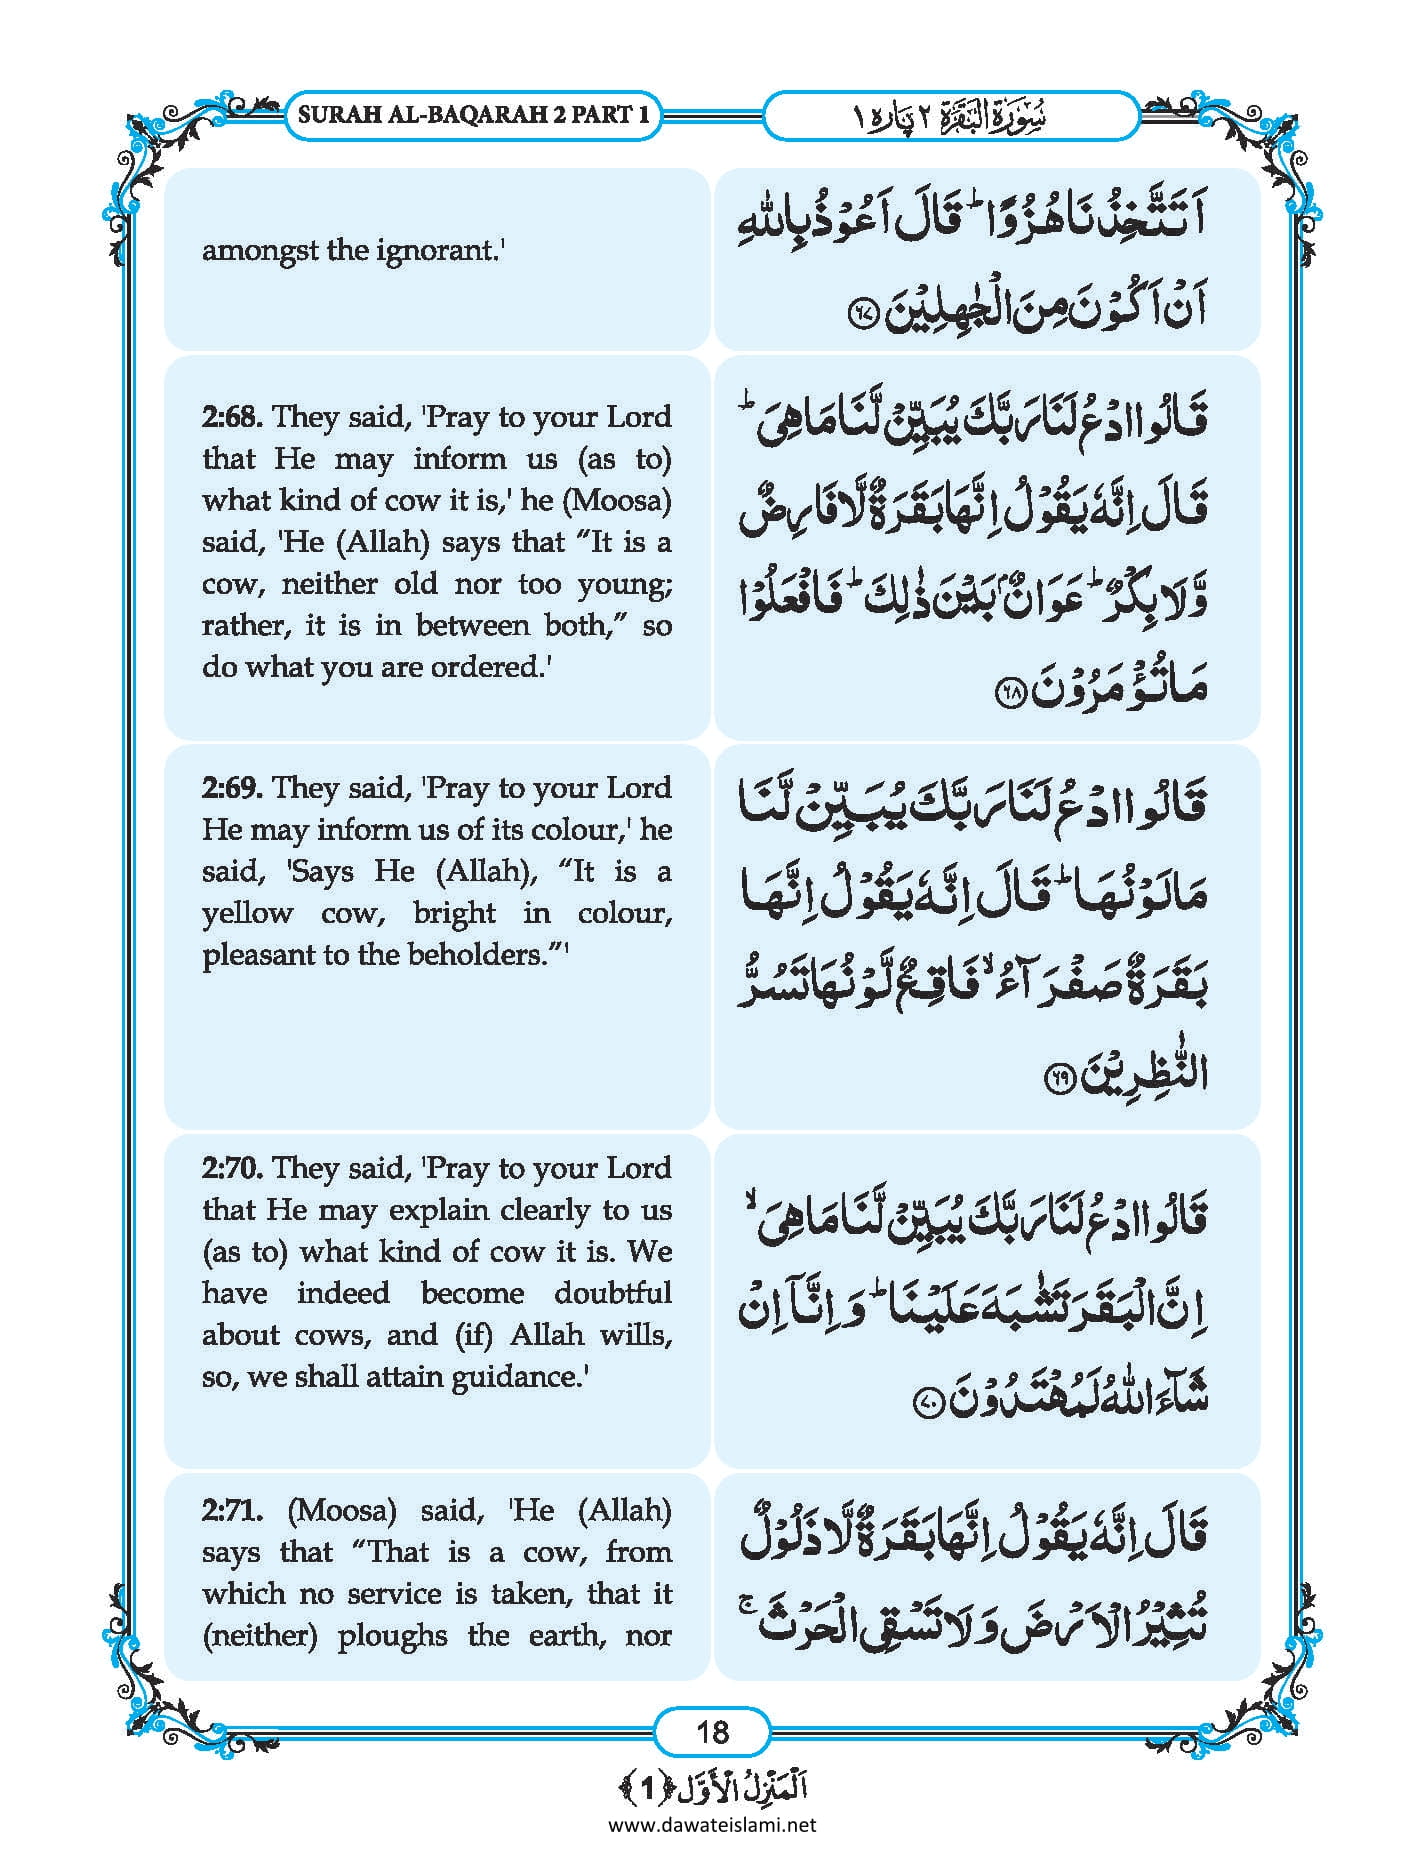 SURAH AL-BAQARAH 2 PART 1
سُوْرَۃُ الْبَقَرَۃِ ٢ پارہ ١
amongst the ignorant.'
اَتَتَّخِذُنَا هُزُوًا ؕ قَالَ اَعُوْذُ بِاللّٰهِ
اَنْ اَكُوْنَ مِنَ الْجٰهِلِیْنَ ﴿۶۷﴾
2:68. They said, 'Pray to your Lord
that He may inform us (as to)
what kind of cow it is,' he (Moosa)
said, 'He (Allah) says that “It is a
cow, neither old nor too young;
rather, it is in between both,” so
do what you are ordered.'
قَالُوا ادْعُ لَنَا رَبَّكَ یُبَیِّنْ لَّنَا مَا هِیَ ؕ
قَالَ اِنَّهٗ یَقُوْلُ اِنَّهَا بَقَرَةٌ لَّا فَارِضٌ
وَّلَا بِكْرٌ ؕ عَوَانٌۢ بَیْنَ ذٰلِكَ ؕ فَافْعَلُوْا
مَا تُؤْمَرُوْنَ ﴿۶۸﴾
2:69. They said, 'Pray to your Lord
He may inform us of its colour,' he
said, 'Says He (Allah), “It is a
yellow cow, bright in colour,
pleasant to the beholders.”'
قَالُوا ادْعُ لَنَا رَبَّكَ یُبَیِّنْ لَّنَا
مَا لَوْنُهَا ؕ قَالَ اِنَّهٗ یَقُوْلُ اِنَّهَا
بَقَرَةٌ صَفْرَآءُ ۙ فَاقِعٌ لَّوْنُهَا تَسُرُّ
النّٰظِرِیْنَ ﴿۶۹﴾
2:70. They said, 'Pray to your Lord
that He may explain clearly to us
(as to) what kind of cow it is. We
have indeed become doubtful
about cows, and (if) Allah wills,
so, we shall attain guidance.'
قَالُوا ادْعُ لَنَا رَبَّكَ یُبَیِّنْ لَّنَا مَا هِیَ ۙ
اِنَّ الْبَقَرَ تَشٰبَهَ عَلَیْنَا ؕ وَ اِنَّاۤ اِنْ
شَآءَ اللّٰهُ لَمُهْتَدُوْنَ ﴿۷۰﴾
2:71. (Moosa) said, 'He (Allah)
says that “That is a cow, from
which no service is taken, that it
(neither) ploughs the earth, nor
قَالَ اِنَّهٗ یَقُوْلُ اِنَّهَا بَقَرَةٌ لَّا ذَلُوْلٌ
تُثِیْرُ الْاَرْضَ وَ لَا تَسْقِی الْحَرْثَ ۚ
18
اَلْمَنْزِلُ الْاَوَّل ﴿1﴾
www.dawateislami.net